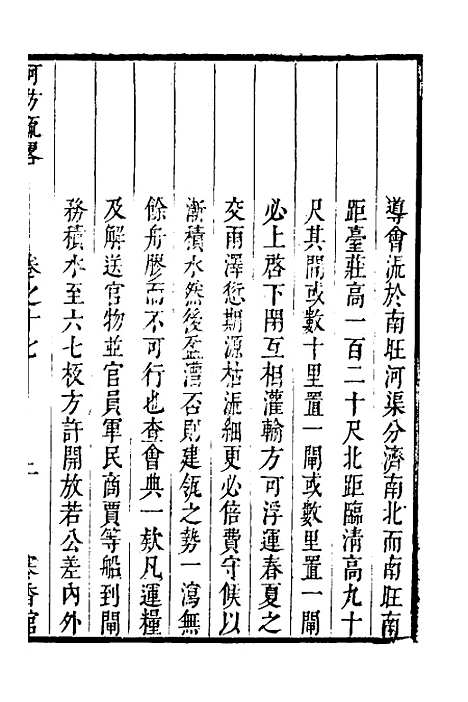 導會流於南旺河渠分濟南北而南旺南
距臺莊高一百二十尺北距臨清高九十
尺其閘或數十里置一閘或數里置一閘
必上啓下閉互相灌輸方可浮運春夏之
交雨澤愆期源枯流細更必倍費守候以
漸積水然後盈漕否則建瓴之勢一瀉無
餘舟膠而不可行也查會典一欵凡運糧
及解送官物並官員軍民商賈等船到閘
務積水至六七板方許開放若公差內外
河防疏畧 卷之十七 二 寒香館